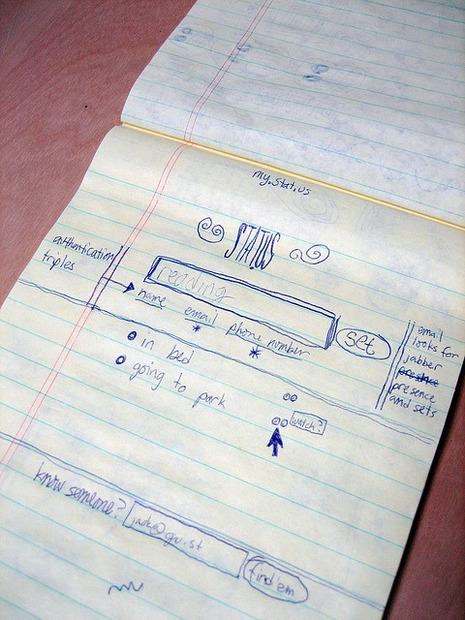 my.stat.us
STATUS
authentication
triples
reading
set
name email phone number
in bed
going to park
watch?
email
looks for
jabber
presence
presence
and sets
know someone?
jack@gu.st
find 'em